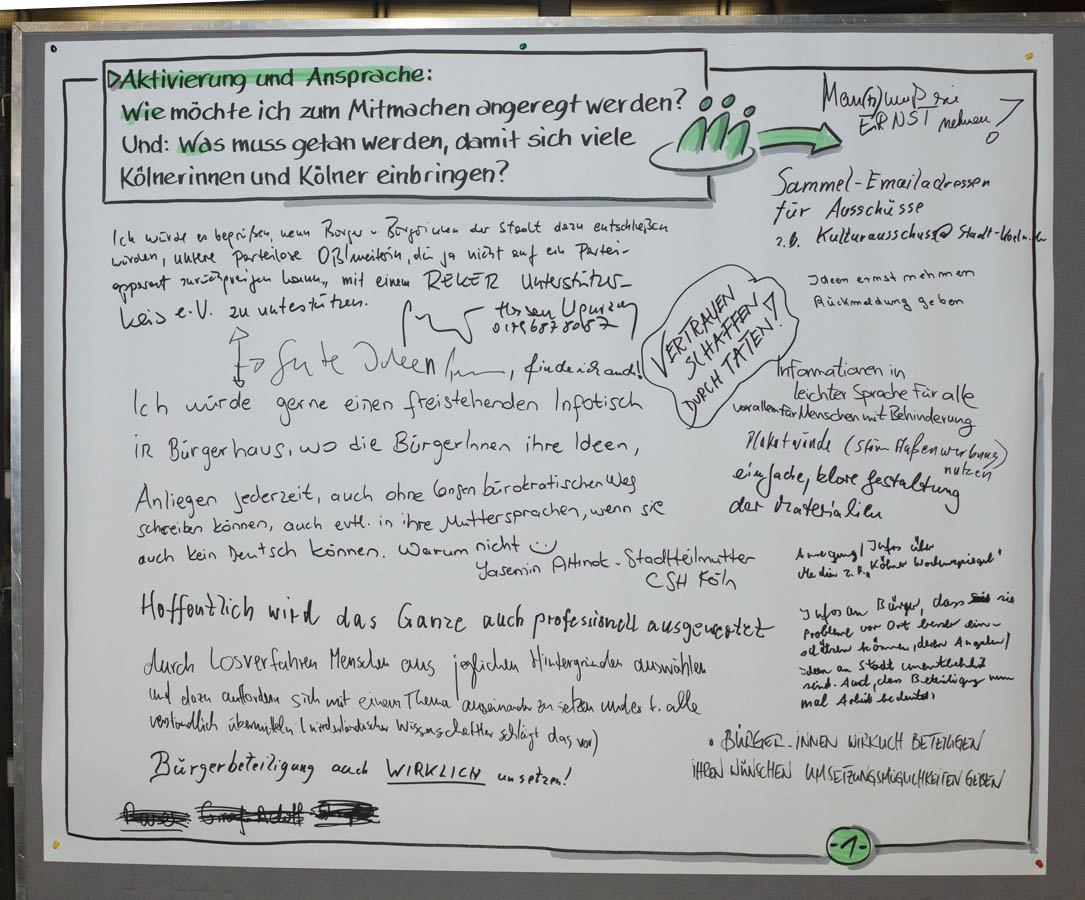 Aktivierung und Ansprache:
Wie möchte ich zum Mitmachen angeregt werden?
Und: Was muss getan werden, damit sich viele
Kölnerinnen und Kölner einbringen?
Man(n) muß sie
ERNST nehmen!
Sammel-Emailadressen
für Ausschüsse
z.B. Kulturausschuss@Stadt-Koeln.de
Ideen ernst nehmen
Rückmeldung geben
Ich würde es begrüßen, wenn Bürger u. Bürgerinnen der Stadt dazu entschließen
würden, unsere Parteilose OB'meisterin, die ja nicht auf ein Partei-
apparat zurückgreifen kann, mit einem REKER Unterstützer-
kreis e.V. zu unterstützen.
VERTRAUEN
SCHAFFEN
DURCH TATEN!
Gute Ideen, finde ich auch!
Ich würde gerne einen freistehenden Infotisch
in Bürgerhaus, wo die BürgerInnen ihre Ideen,
Anliegen jederzeit, auch ohne langen bürokratischen Weg
schreiben können, auch evtl. in ihre Muttersprachen, wenn sie
auch kein Deutsch können. Warum nicht
Yasemin - Stadtteilmutter
CSH Köln
Informationen in
leichter Sprache Für alle
vor allem für Menschen mit Behinderung
Plakatwände (Ströer Außenwerbung)
nutzen
einfache, klare Gestaltung
der Materialien
Anregung/Infos über
Medien z.B. "Kölner Wochenspiegel"
Infos an Bürger, dass sie
Probleme vor Ort besser ein-
schätzen können, deren Angaben/
Ideen an Stadt unentbehrlich
sind. Auch, dass Beteiligung nun
mal Arbeit bedeutet
Hoffentlich wird das Ganze auch professionell ausgewertet
durch Losverfahren Menschen aus jeglichen Hintergründen auswählen
und dazu auffordern sich mit einem Thema auseinander zu setzen und es f. alle
verständlich übermitteln (niederländischer Wissenschaftler schlägt das vor)
Bürgerbeteiligung auch WIRKLICH umsetzen!
• BÜRGER_INNEN WIRKLICH BETEILIGEN
IHREN WÜNSCHEN UMSETZUNGSMÖGLICHKEITEN GEBEN
-1-